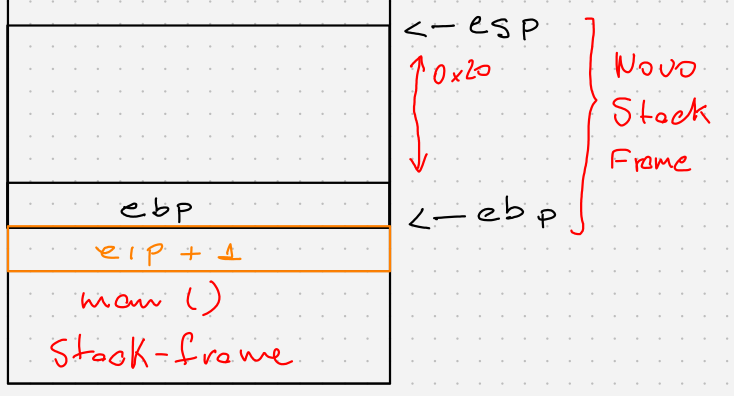 <- esp
0x20
Novo
Stack
Frame
ebp
<- ebp
eip + 1
main ()
Stack-frame